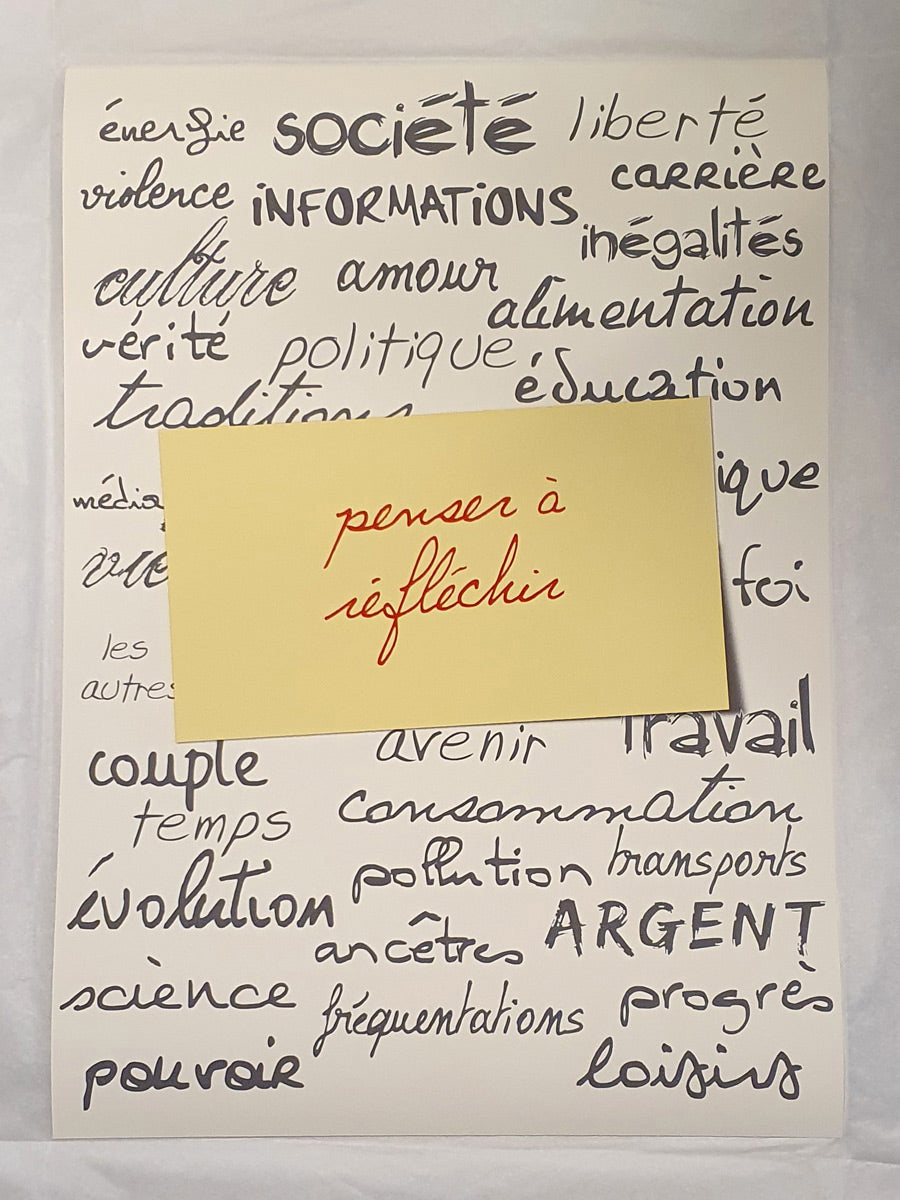 énergie société liberté
violence iNFORMATiONS carrière
inégalités
culture amour
alimentation
vérité politique
éducation
traditions
ique
média
penser à
vie
réfléchir
foi
les
autres
travail
avenir
couple
consommation
temps
pollution transports
évolution
ARGENT
ancêtres
science progrès
fréquentations
pouvoir loisirs